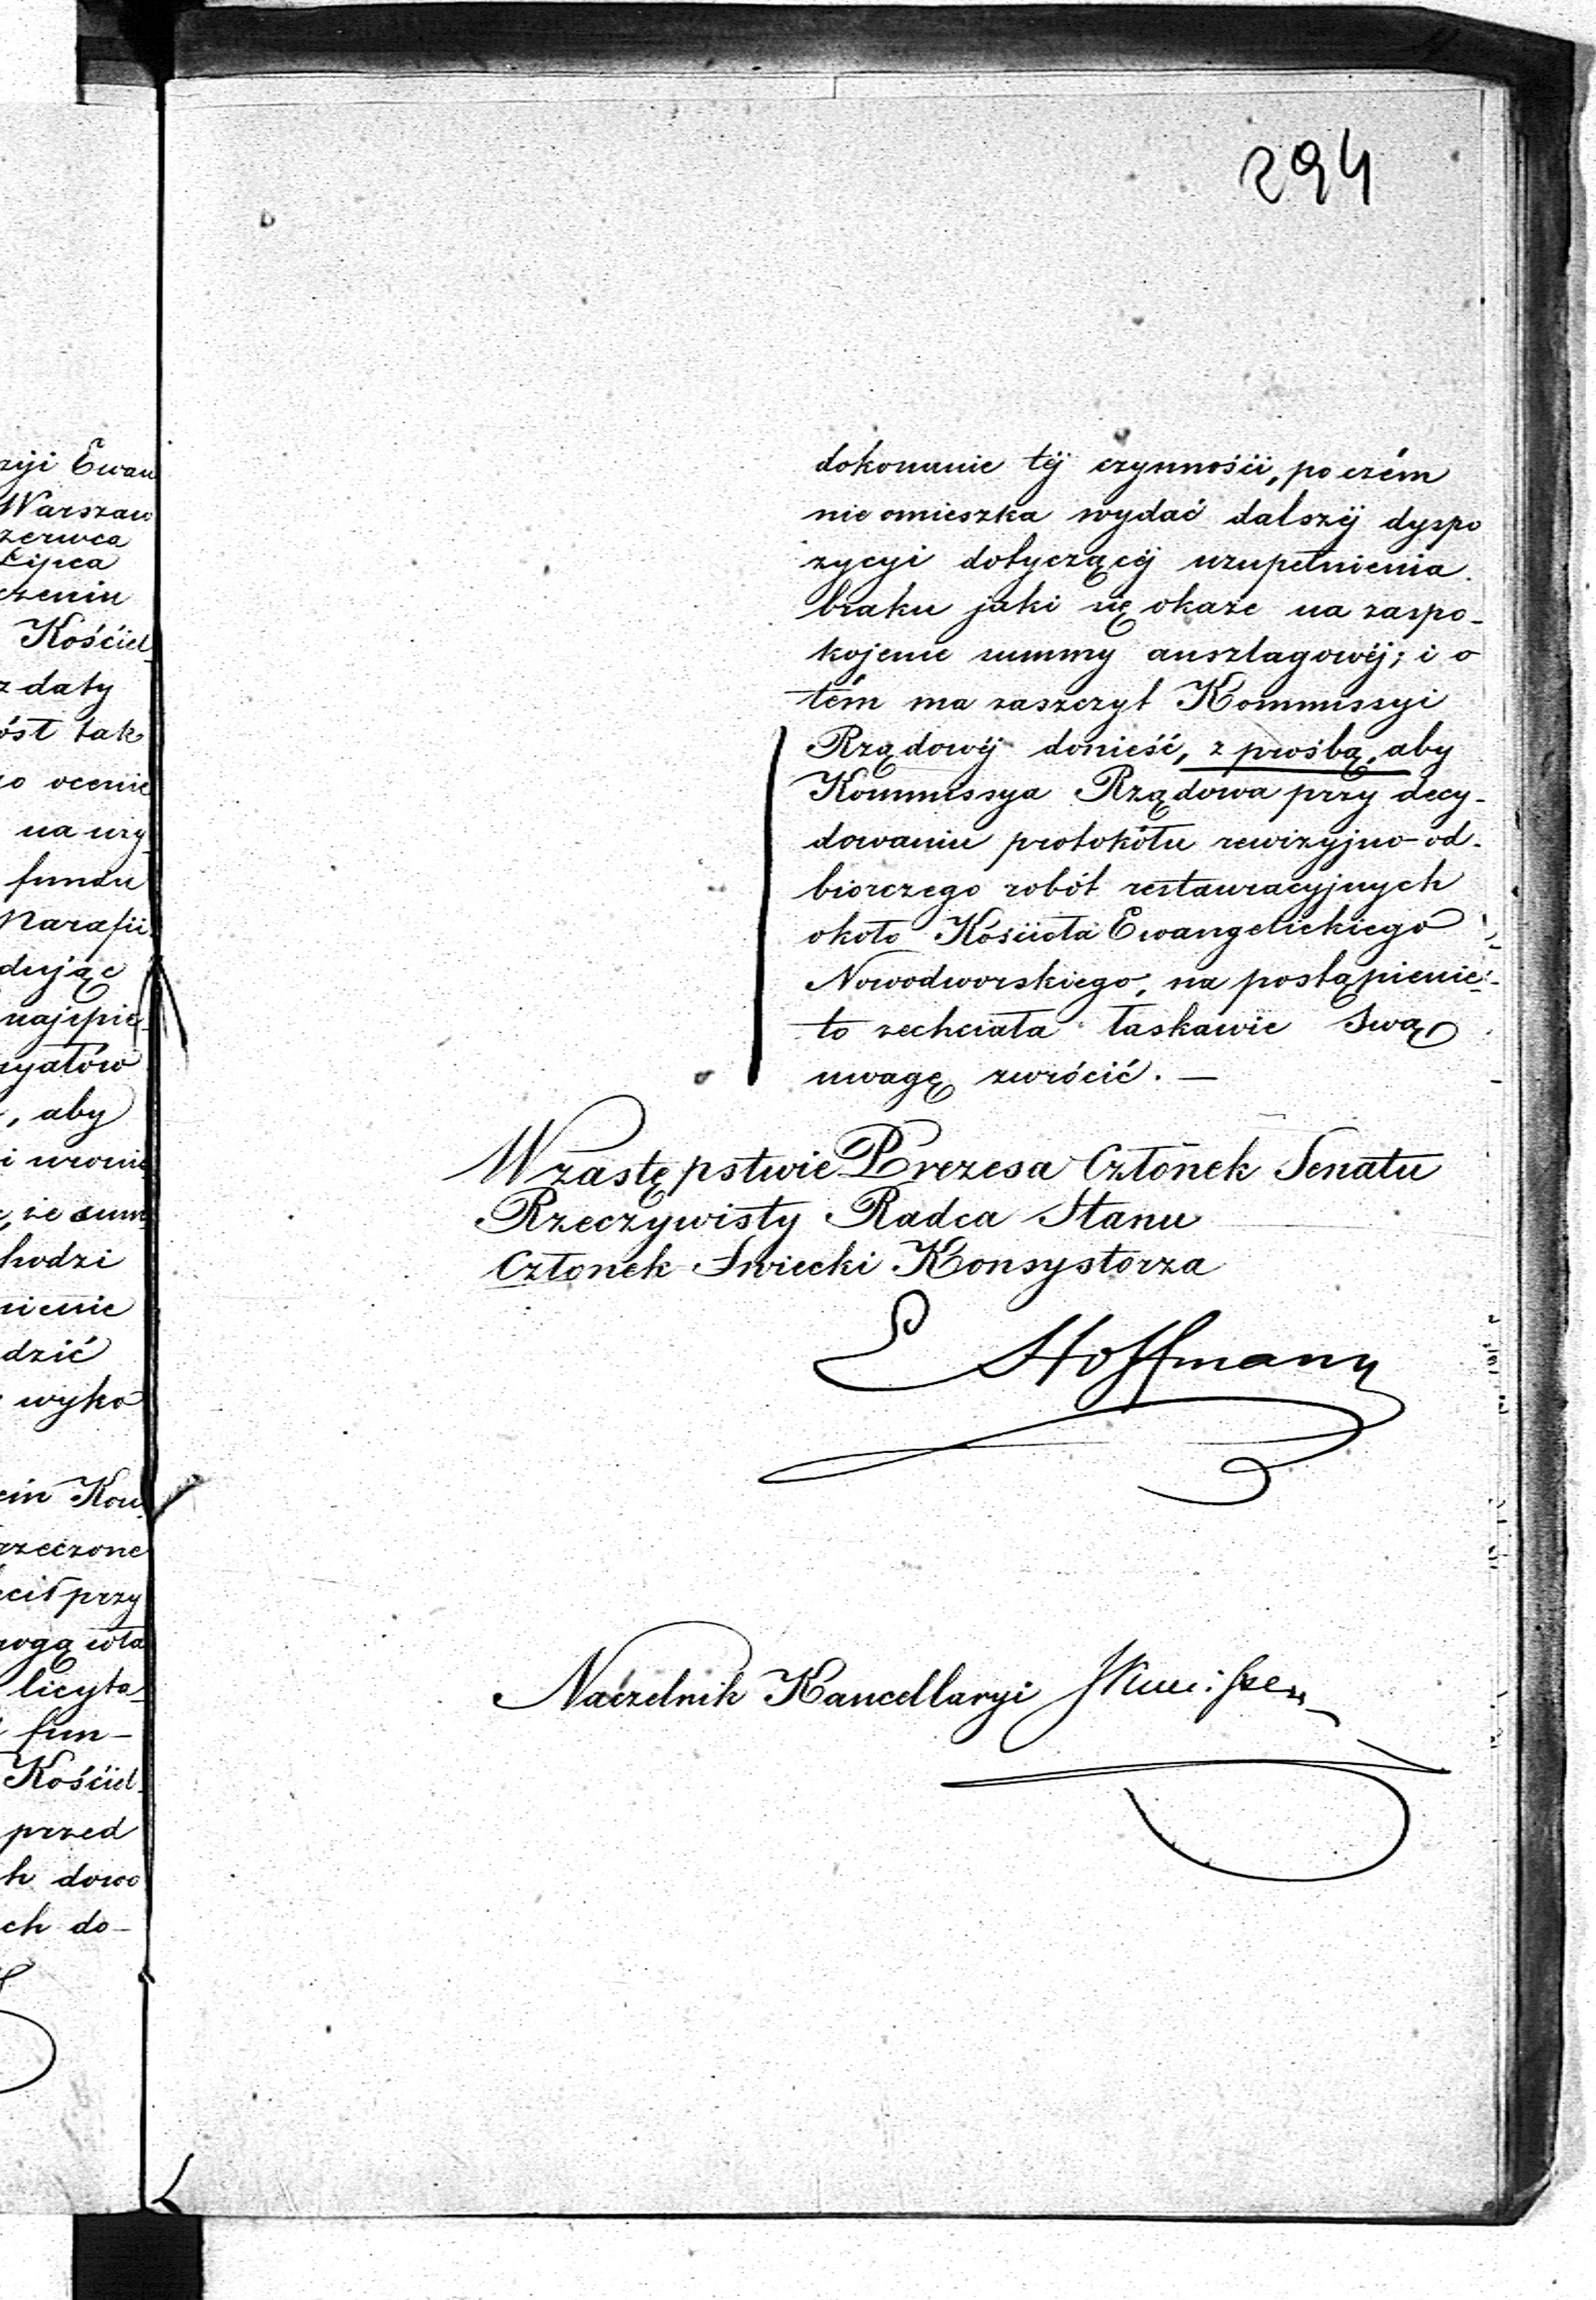 294
zyi Ewan
Warszaw
zerwca
Lipca
czeniu
Kościel
z daty
óst tak
o ocenie
na uzy
fundu
Parafii
dując
najspie
ryałów
, aby
i
, że sum
hodzi
nienie
dzić
wyko
Kon
rzeczone
cił przy
licyta
fun-
Kościel
przed
h dowo
ch do-
dokonanie téj czynności, poczém
nie omieszka wydać dalszéj dyspo
zycyi dotyczącéj uzupełnienia
braku jaki się okaże na zaspo-
kojenie summy anszlagowéj; i o
tém ma zaszczyt Kommissyi
Rządowéj donieść, z prośbą, aby
Kommissya Rządowa przy decy-
dowaniu protokółu rewizyjno-od-
biorczego robót restauracyjnych
około Kościoła Ewangelickiego
Nowodworskiego, na postąpienie
to zechciała łaskawie Swą
uwagę zwrócić. —
W zastępstwie Prezesa Członek Senatu
Rzeczywisty Radca Stanu
Członek Świecki Konsystorza
E Hoffmann
Naczelnik Kancellaryi